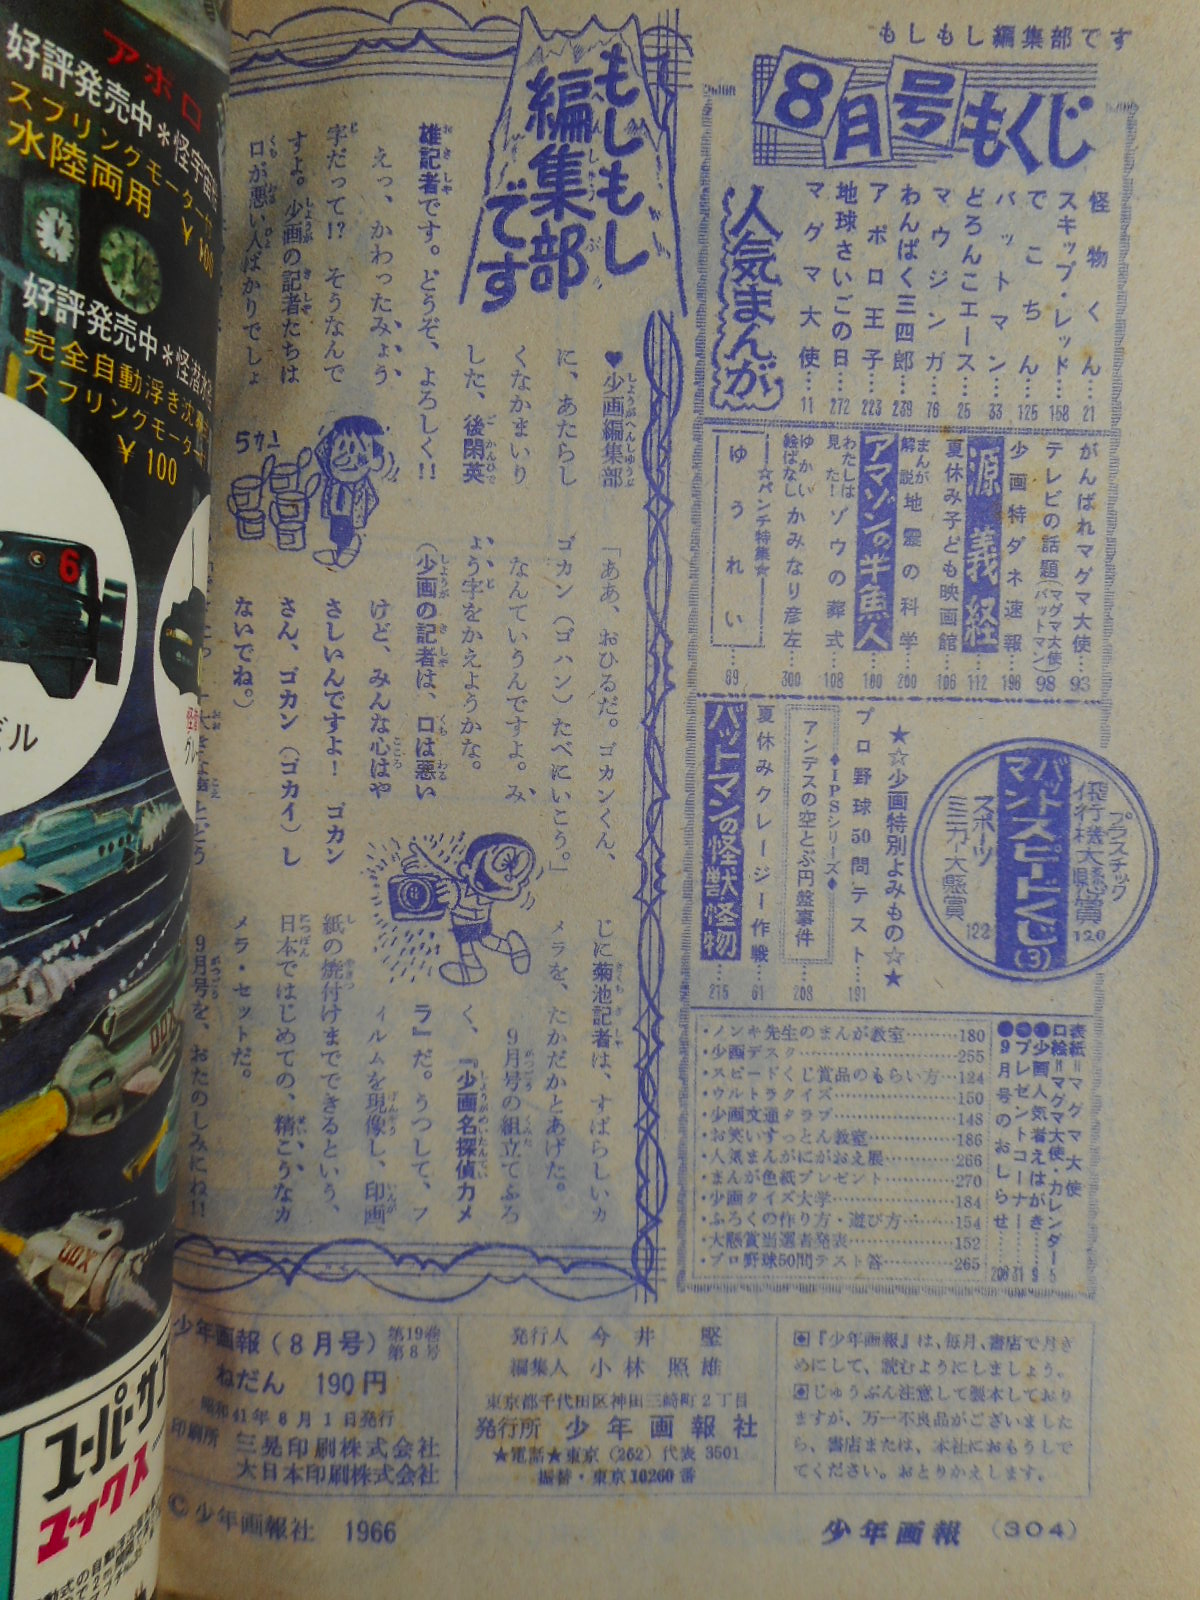 もしもし編集部です
8月号もくじ
人気まんが
怪物くん…21
スキップ・レッド…158
でこちん…125
バットマン…33
どろんこエース…25
マウジンガ…76
わんぱく三四郎…239
アポロ王子…223
地球さいごの日…272
マグマ大使…11
がんばれマグマ大使…93
テレビの話題(マグマ大使 バットマン)98
少画特ダネ速報…196
源義経…112
夏休み子ども映画館…106
まんが解説 地震の科学…200
アマゾンの半魚人…100
わたしは見た!ゾウの葬式…108
ゆかい絵ばなし かみなり彦左…300
☆パンチ特集☆
ゆうれい…89
プラスチック飛行機大懸賞120
バットマンスピードくじ(3)
スポーツミニカー大懸賞122
★☆少画特別よみもの☆★
プロ野球50問テスト…191
◆IPSシリーズ◆
アンデスの空とぶ円盤事件…203
夏休みクレージー作戦…61
バットマンの怪獣・怪物…215
表紙=マグマ大使
口絵=マグマ大使・カレンダー…5
●少画人気者えはがき…9
●プレゼントコーナー…31
●9月号のおしらせ…206
・ノンキ先生のまんが教室………180
・少画デスク………255
・スピードくじ賞品のもらい方…124
・ウルトラクイズ………150
・少画文通クラブ………148
・お笑いすっとん教室………186
・人気まんがにがおえ展………266
・まんが色紙プレゼント………270
・少画クイズ大学………184
・ふろくの作り方・遊び方………154
・大懸賞当選者発表………152
・プロ野球50問テスト答………265
もしもし編集部です
♥少画編集部
に、あたらし
くなかまいり
した、後閑英
雄記者です。どうぞ、よろしく!!
えっ、かわったみょう
字だって!? そうなんで
すよ。少画の記者たちは
口が悪い人ばかりでしょ
「ああ、おひるだ。ゴカンくん、
ゴカン(ゴハン)たべにいこう。」
なんていうんですよ。み
ょう字をかえようかな。
(少画の記者は、口は悪い
けど、みんな心はや
さしいんですよ! ゴカン
さん、ゴカン(ゴカイ)し
ないでね。)
じに菊池記者は、すばらしいカ
メラを、たかだかとあげた。
9月号の組立てふろ
く、『少画名探偵カメ
ラ』だ。うつして、フ
ィルムを現像し、印画
紙の焼付けまでできるという、
日本ではじめての、精こうなカ
メラ・セットだ。
9月号を、おたのしみにね!!
少年画報(8月号)第19巻第8号
ねだん 190円
昭和41年8月1日発行
印刷所 三晃印刷株式会社
大日本印刷株式会社
発行人 今井堅
編集人 小林照雄
東京都千代田区神田三崎町2丁目
発行所 少年画報社
★電話★東京(262)代表3501
振替・東京10260番
●『少年画報』は、毎月、書店で月ぎ
めにして、読むようにしましょう。
●じゅうぶん注意して製本しており
ますが、万一不良品がございました
ら、書店または、本社におもうしで
てください。おとりかえします。
©少年画報社 1966
少年画報 (304)
アポロ
好評発売中*怪宇宙
スプリングモーター付
水陸両用 ¥100
好評発売中*怪潜水
完全自動浮き沈
スプリングモーター
¥100
6